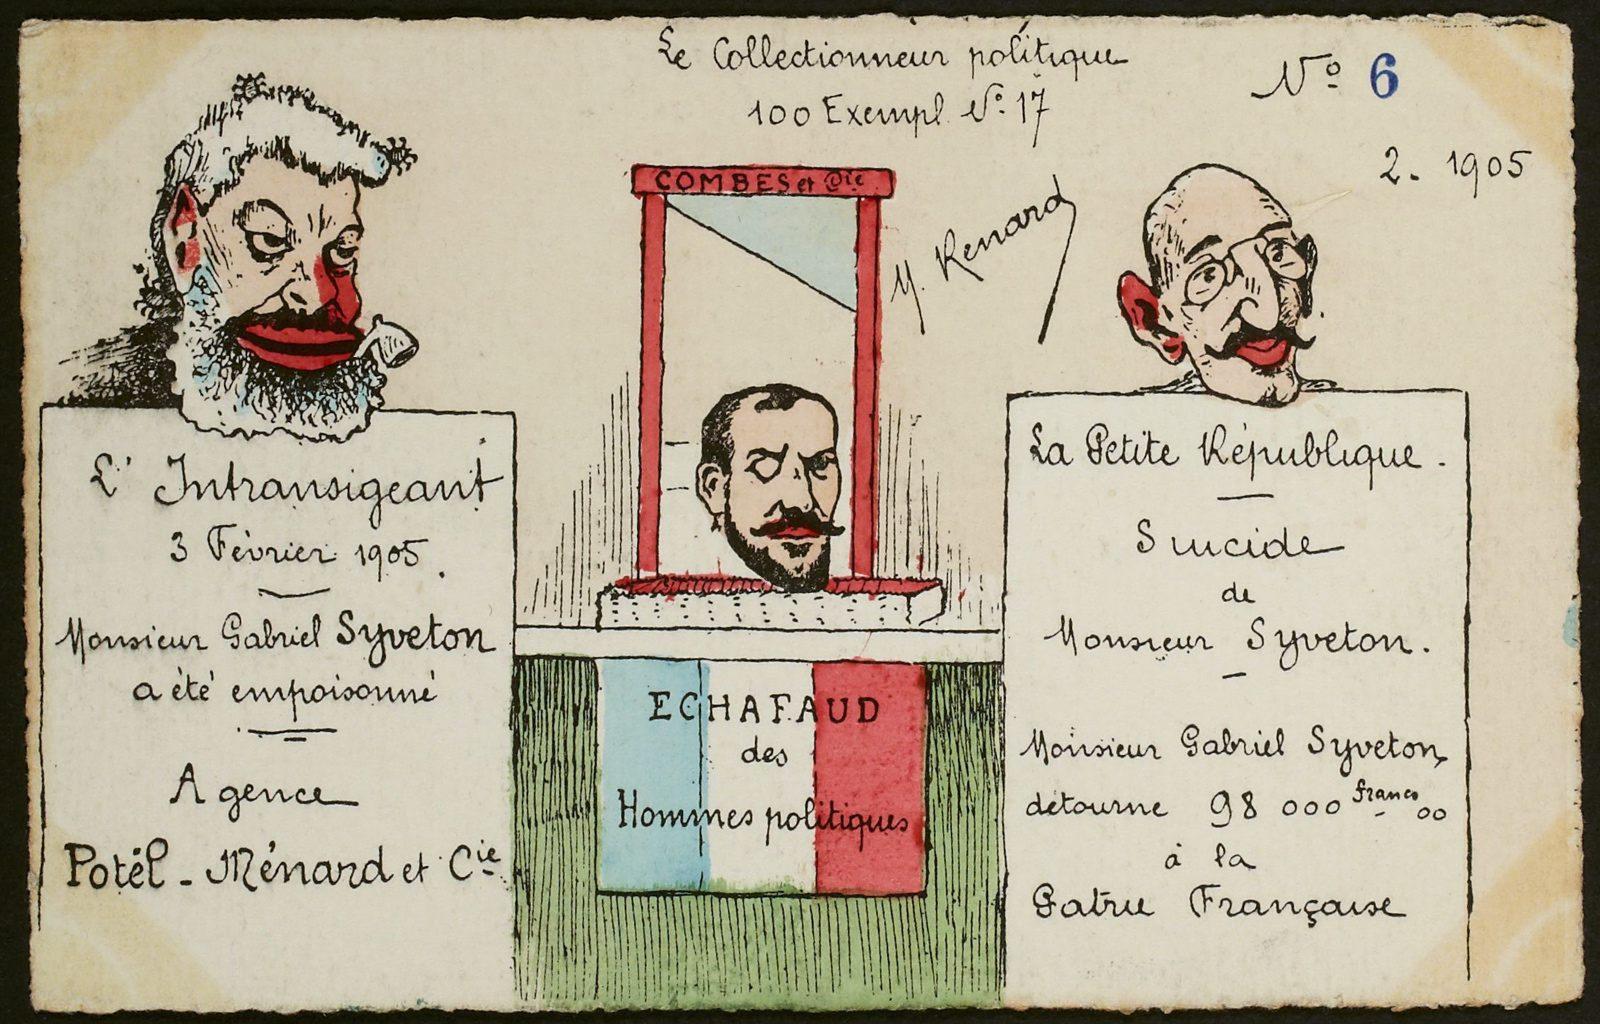 Le Collectionneur politique
100 Exempl. No. 17
No 6
2. 1905
COMBES et Cie
M. Renard
L'Intransigeant
3 Février 1905.
Monsieur Gabriel Syveton
a été empoisonné
Agence
Potël - Ménard et Cie
ECHAFAUD
des
Hommes politiques
La Petite République.
Suicide
de
Monsieur Syveton.
Monsieur Gabriel Syveton
détourne 98 000 francs 00
à la
Patrie Française